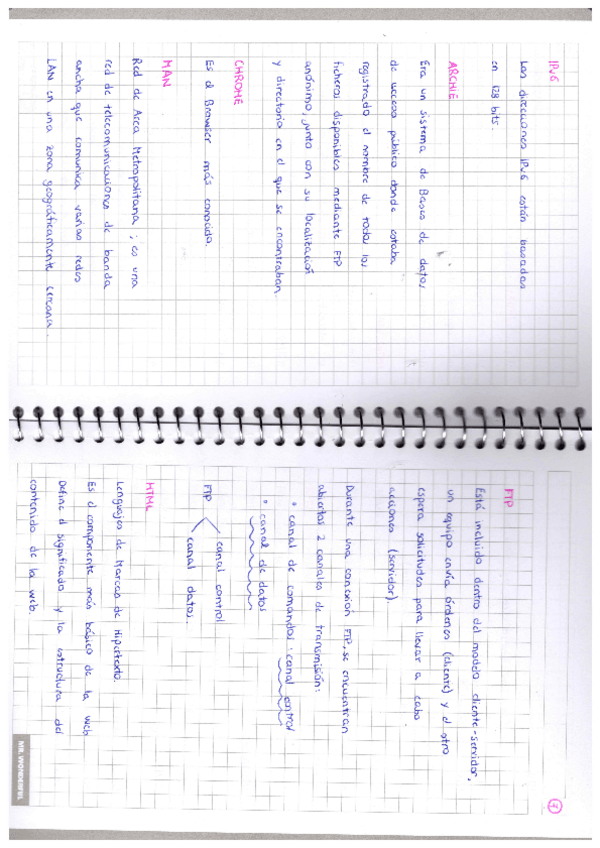 IPv6
Las direcciones IPv6 están basadas
en 128 bits.
ARCHIE
Era un sistema de Bases de datos
de acceso público donde estaba
registrado el nombre de todos los
ficheros disponibles mediante FTP
anónimo, junto con su localización
y directorio en el que se encontraban
CHROME
Es el Browser más conocido.
MAN
Red de Area Metropolitana; es una
red de telecomunicaciones de banda
ancha que comunica varias redes
LAN en una zona geográficamente cercana.
7
FTP
Está incluido dentro del modelo cliente-servidor,
un equipo envía órdenes (cliente) y el otro
espera solicitudes para llevar a cabo
acciones (servidor).
Durante una conexión FTP, se encuentran
abiertos 2 canales de transmisión:
* canal de comandos: canal control
* canal de datos
FTP
canal control
canal datos.
HTML
Lenguajes de Marcas de Hipertexto.
Es el componente más básico de la web
Define el significado y la estructura del
contenido de la web.
MR. WONDERFUL